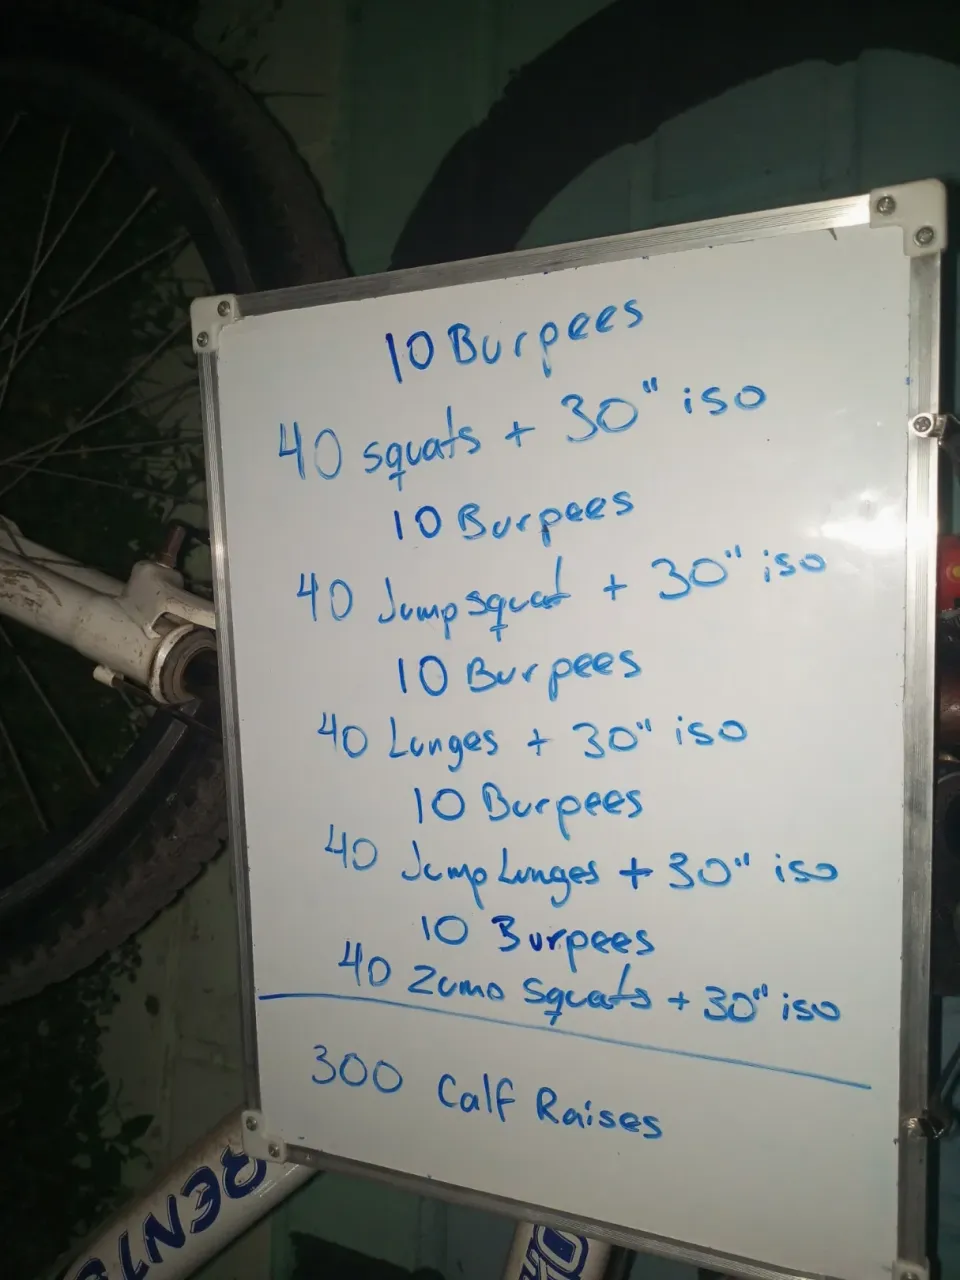 10 Burpees
40 squats + 30" iso
10 Burpees
40 Jump squat + 30" iso
10 Burpees
40 Lunges + 30" iso
10 Burpees
40 Jump Lunges + 30" iso
10 Burpees
40 Zumo Squats + 30" iso
300 Calf Raises